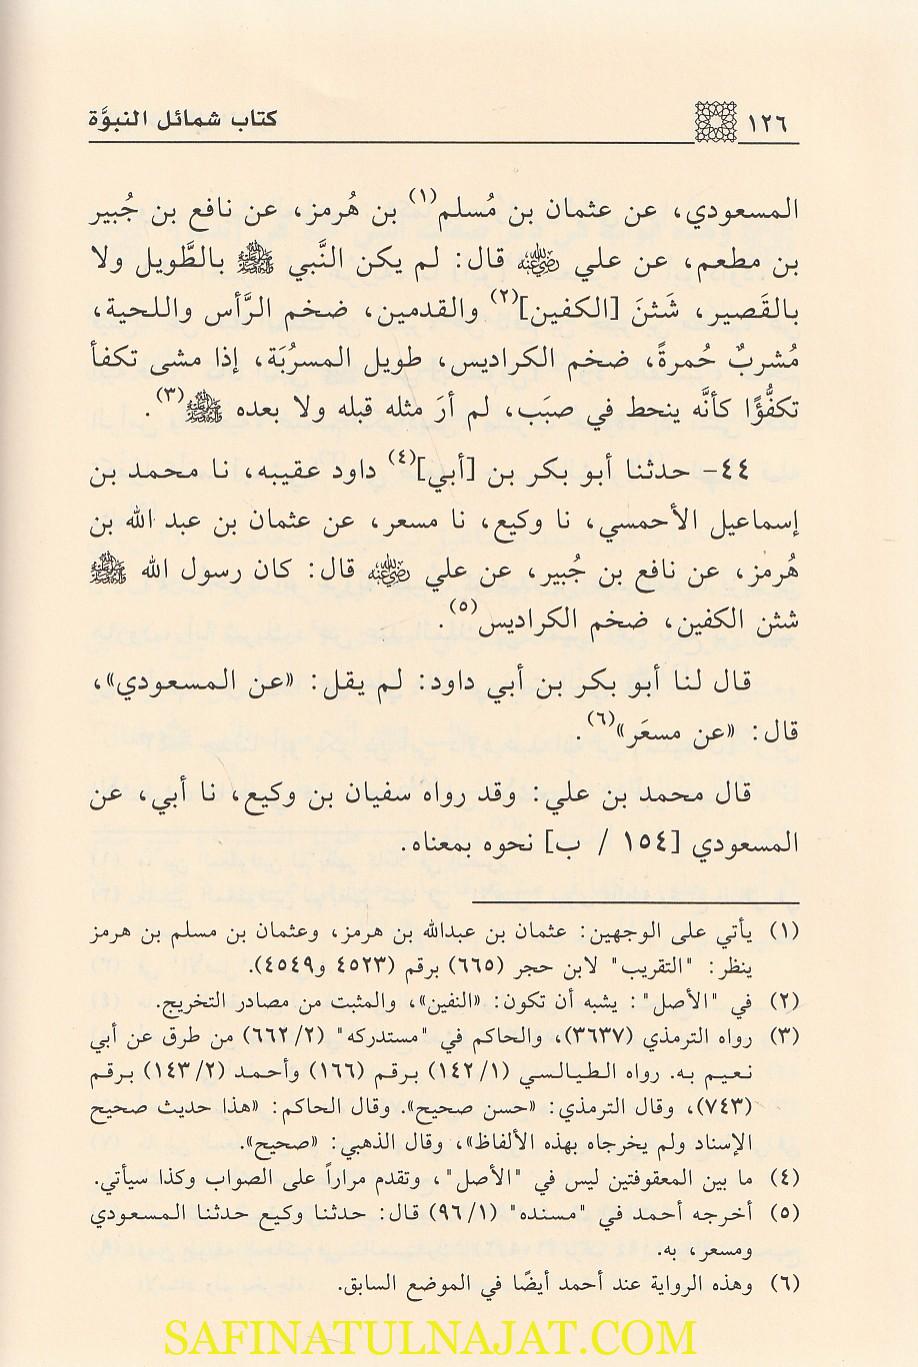 ١٢٦ كتاب شمائل النبوَّة
المسعودي، عن عثمان بن مُسلم(١) بن هُرمز، عن نافع بن جُبير
بن مطعم، عن علي رضي الله عنه قال: لم يكن النَّبي ﷺ بالطَّويل ولا
بالقَصير، شَثنَ [الكفين](٢) والقدمين، ضخم الرَّأس واللحية،
مُشربٌ حُمرةً، ضخم الكراديس، طويل المسرُبَة، إذا مشى تكفأ
تكفُّؤًا كأنَّه ينحط في صبَب، لم أرَ مثله قبله ولا بعده ﷺ(٣).
٤٤- حدثنا أبو بكر بن [أبي](٤) داود عقيبه، نا محمد بن
إسماعيل الأحمسي، نا وكيع، نا مسعر، عن عثمان بن عبد الله بن
هُرمز، عن نافع بن جُبير، عن علي رضي الله عنه قال: كان رسول الله ﷺ
شثن الكفين، ضخم الكراديس(٥).
قال لنا أبو بكر بن أبي داود: لم يقل: «عن المسعودي»،
قال: «عن مسعَر»(٦).
قال محمد بن علي: وقد رواه سفيان بن وكيع، نا أبي، عن
المسعودي [١٥٤ / ب] نحوه بمعناه.
(١) يأتي على الوجهين: عثمان بن عبدالله بن هرمز، وعثمان بن مسلم بن هرمز
ينظر: "التقريب" لابن حجر (٦٦٥) برقم (٤٥٢٣ و٤٥٤٩).
(٢) في "الأصل": يشبه أن تكون: «النفين»، والمثبت من مصادر التخريج.
(٣) رواه الترمذي (٣٦٣٧)، والحاكم في "مستدركه" (٦٦٢/٢) من طرق عن أبي
نعيم به. رواه الطيالسي (١٤٢/١) برقم (١٦٦) وأحمد (١٤٣/٢) برقم
(٧٤٣)، وقال الترمذي: «حسن صحيح». وقال الحاكم: «هذا حديث صحيح
الإسناد ولم يخرجاه بهذه الألفاظ»، وقال الذهبي: «صحيح».
(٤) ما بين المعقوفتين ليس في "الأصل"، وتقدم مراراً على الصواب وكذا سيأتي.
(٥) أخرجه أحمد في "مسنده" (٩٦/١) قال: حدثنا وكيع حدثنا المسعودي
ومسعر، به.
(٦) وهذه الرواية عند أحمد أيضًا في الموضع السابق.
SAFINATULNAJAT.COM